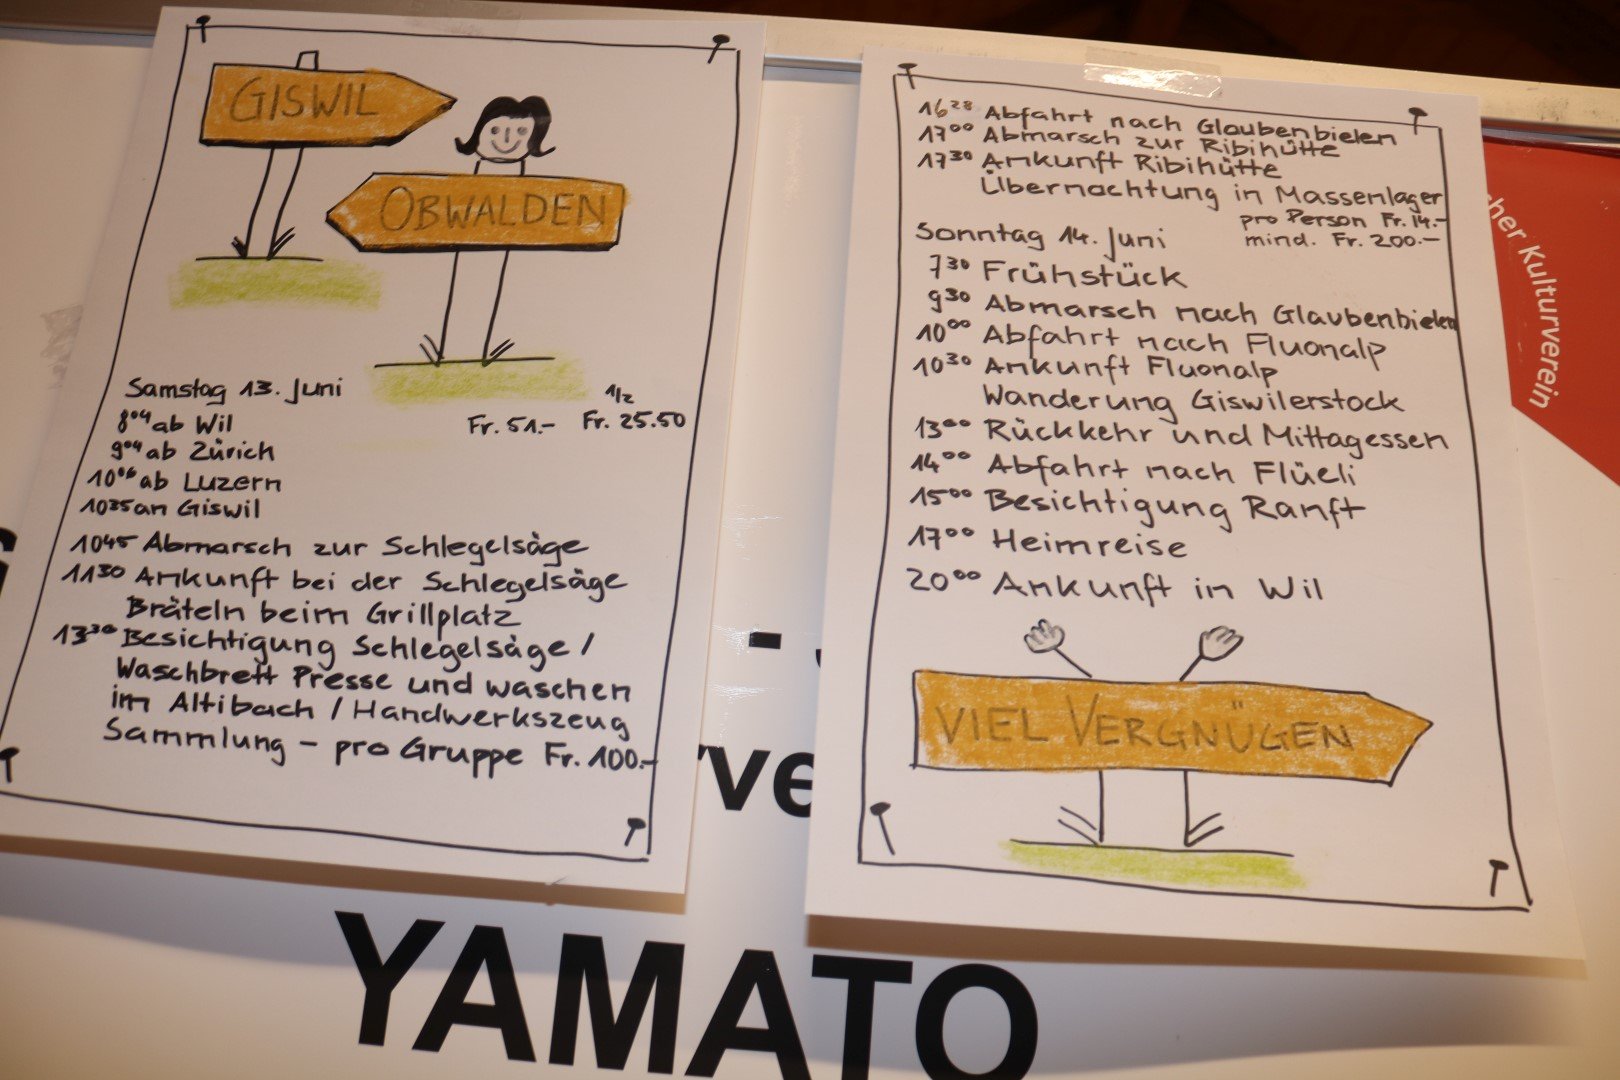 GISWIL
OBWALDEN
Samstag 13. Juni
1/2
8⁰⁴ ab Wil Fr. 51.- Fr. 25.50
9⁰⁴ ab Zürich
10⁰⁶ ab Luzern
10³⁵ an Giswil
10⁴⁵ Abmarsch zur Schlegelsäge
11³⁰ Ankunft bei der Schlegelsäge
Bräteln beim Grillplatz
13³⁰ Besichtigung Schlegelsäge /
Waschbrett Presse und waschen
im Altibach / Handwerkszeug
Sammlung - pro Gruppe Fr. 100.-
16²⁸ Abfahrt nach Glaubenbielen
17⁰⁰ Abmarsch zur Ribihütte
17³⁰ Ankunft Ribihütte
Übernachtung in Massenlager
pro Person Fr. 14.-
mind. Fr. 200.-
Sonntag 14. Juni
7³⁰ Frühstück
9³⁰ Abmarsch nach Glaubenbielen
10⁰⁰ Abfahrt nach Fluonalp
10³⁰ Ankunft Fluonalp
Wanderung Giswilerstock
13⁰⁰ Rückkehr und Mittagessen
14⁰⁰ Abfahrt nach Flüeli
15⁰⁰ Besichtigung Ranft
17⁰⁰ Heimreise
20⁰⁰ Ankunft in Wil
VIEL VERGNÜGEN
cher Kulturverein
YAMATO